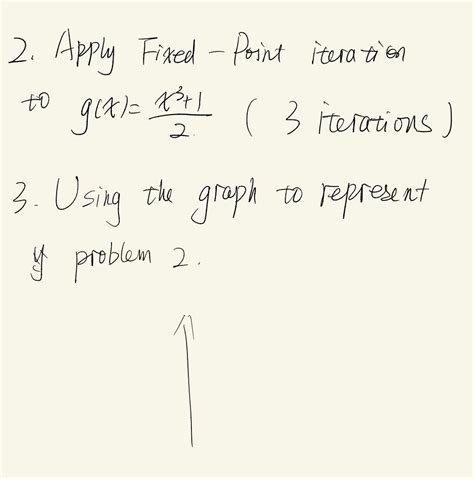 2. Apply Fixed-Point iteration
to g(x)= x³+1 / 2 ( 3 iterations )
3. Using the graph to represent
problem 2.